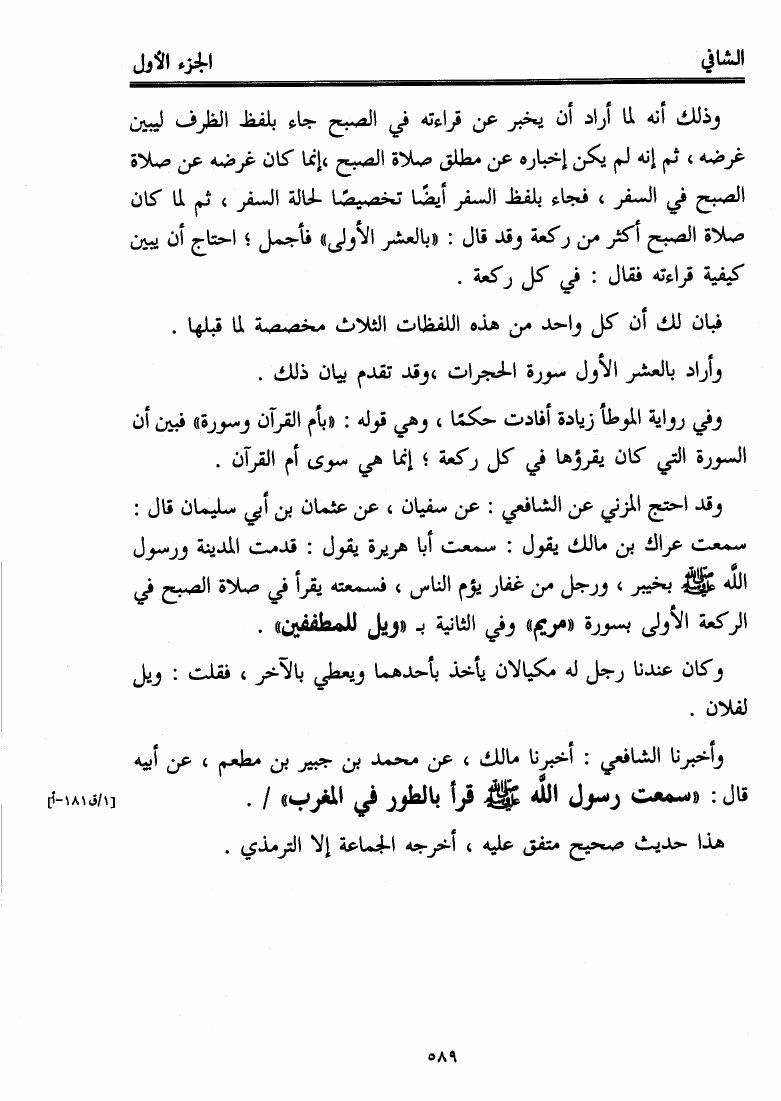 الشافي الجزء الأول
وذلك أنه لما أراد أن يخبر عن قراءته في الصبح جاء بلفظ الظرف ليبين
غرضه ، ثم إنه لم يكن إخباره عن مطلق صلاة الصبح ،إنما كان غرضه عن صلاة
الصبح في السفر ، فجاء بلفظ السفر أيضًا تخصيصًا لحالة السفر ، ثم لما كان
صلاة الصبح أكثر من ركعة وقد قال : «بالعشر الأولى» فأجمل ؛ احتاج أن يبين
كيفية قراءته فقال : في كل ركعة .
فبان لك أن كل واحد من هذه اللفظات الثلاث مخصصة لما قبلها .
وأراد بالعشر الأول سورة الحجرات ،وقد تقدم بيان ذلك .
وفي رواية الموطأ زيادة أفادت حكمًا ، وهي قوله : «بأم القرآن وسورة» فبين أن
السورة التي كان يقرؤها في كل ركعة ؛ إنما هي سوى أم القرآن .
وقد احتج المزني عن الشافعي : عن سفيان ، عن عثمان بن أبي سليمان قال :
سمعت عراك بن مالك يقول : سمعت أبا هريرة يقول : قدمت المدينة ورسول
اللَّه ﷺ بخيبر ، ورجل من غفار يؤم الناس ، فسمعته يقرأ في صلاة الصبح في
الركعة الأولى بسورة «مريم» وفي الثانية بـ «ويل للمطففين» .
وكان عندنا رجل له مكيالان يأخذ بأحدهما ويعطي بالآخر ، فقلت : ويل
لفلان .
وأخبرنا الشافعي : أخبرنا مالك ، عن محمد بن جبير بن مطعم ، عن أبيه
قال : «سمعت رسول اللَّه ﷺ قرأ بالطور في المغرب» / . [١/ق١٨١-أ]
هذا حديث صحيح متفق عليه ، أخرجه الجماعة إلا الترمذي .
٥٨٩